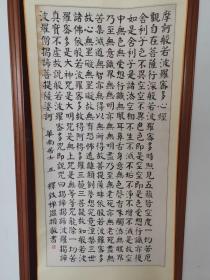 摩訶般若波羅蜜多心經
觀自在菩薩行深般若波羅蜜多時照見五蘊皆空度一切苦厄
舍利子色不異空空不異色色即是空空即是色受想行識亦復
如是舍利子是諸法空相不生不滅不垢不淨不增不減是故空
中無色無受想行識無眼耳鼻舌身意無色聲香味觸法無眼界
乃至無意識界無無明亦無無明盡乃至無老死亦無老死盡無苦
集滅道無智亦無得以無所得故菩提薩埵依般若波羅蜜多
故心無罣礙無罣礙故無有恐怖遠離顛倒夢想究竟涅槃三世
諸佛依般若波羅蜜多故得阿耨多羅三藐三菩提故知般若波
羅蜜多是大神咒是大明咒是無上咒是無等等咒能除一切苦
真實不虛故說般若波羅蜜多咒即說咒曰揭諦揭諦波羅揭諦
波羅僧揭諦菩提薩婆訶
華南居士 敬書